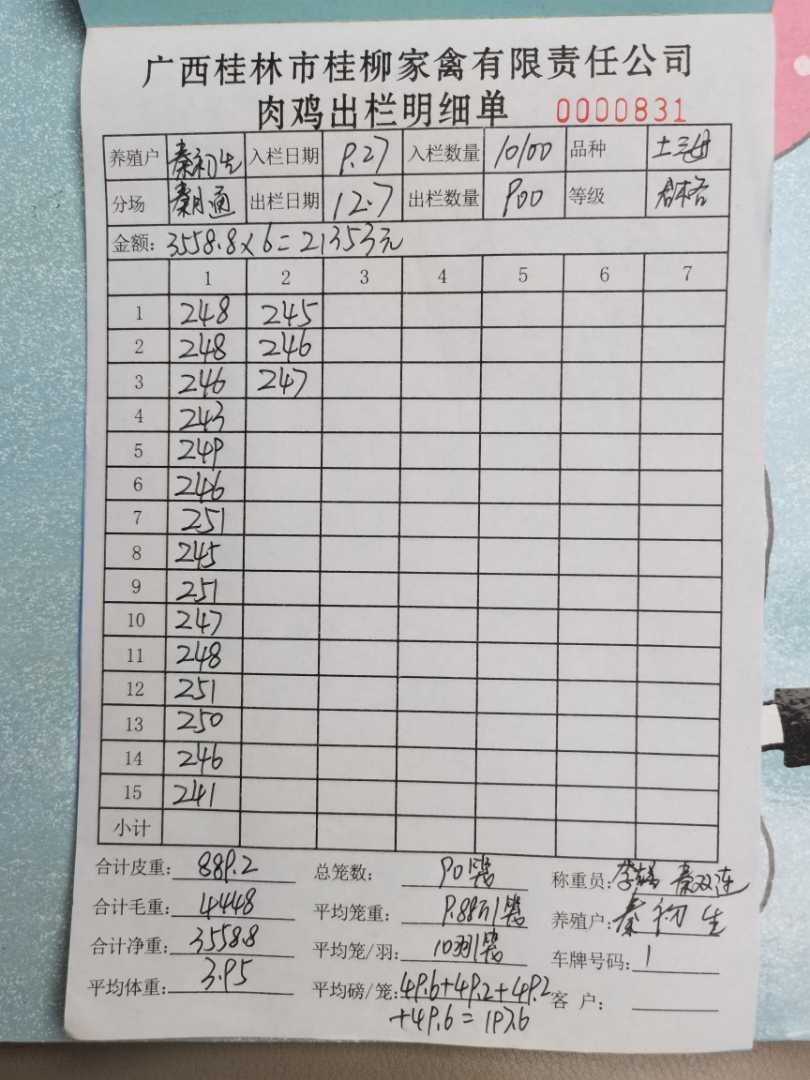 广西桂林市桂柳家禽有限责任公司
肉鸡出栏明细单 0000831
养殖户 秦初生 入栏日期 9.27 入栏数量 10100 品种 土三母
分场 秦月通 出栏日期 12.7 出栏数量 900 等级 合格
金额: 3558.8×6=21353元
1 2 3 4 5 6 7
1 248 245
2 248 246
3 246 247
4 243
5 249
6 246
7 251
8 245
9 251
10 247
11 248
12 251
13 250
14 246
15 241
小计
合计皮重: 889.2 总笼数: 90笼 称重员: 秦双连
合计毛重: 4448 平均笼重: 9.88斤/笼 养殖户: 秦初生
合计净重: 3558.8 平均笼/羽: 10羽/笼 车牌号码: 1
平均体重: 3.95 平均磅/笼: 49.6+49.2+49.2 客户:
+49.6=197.6